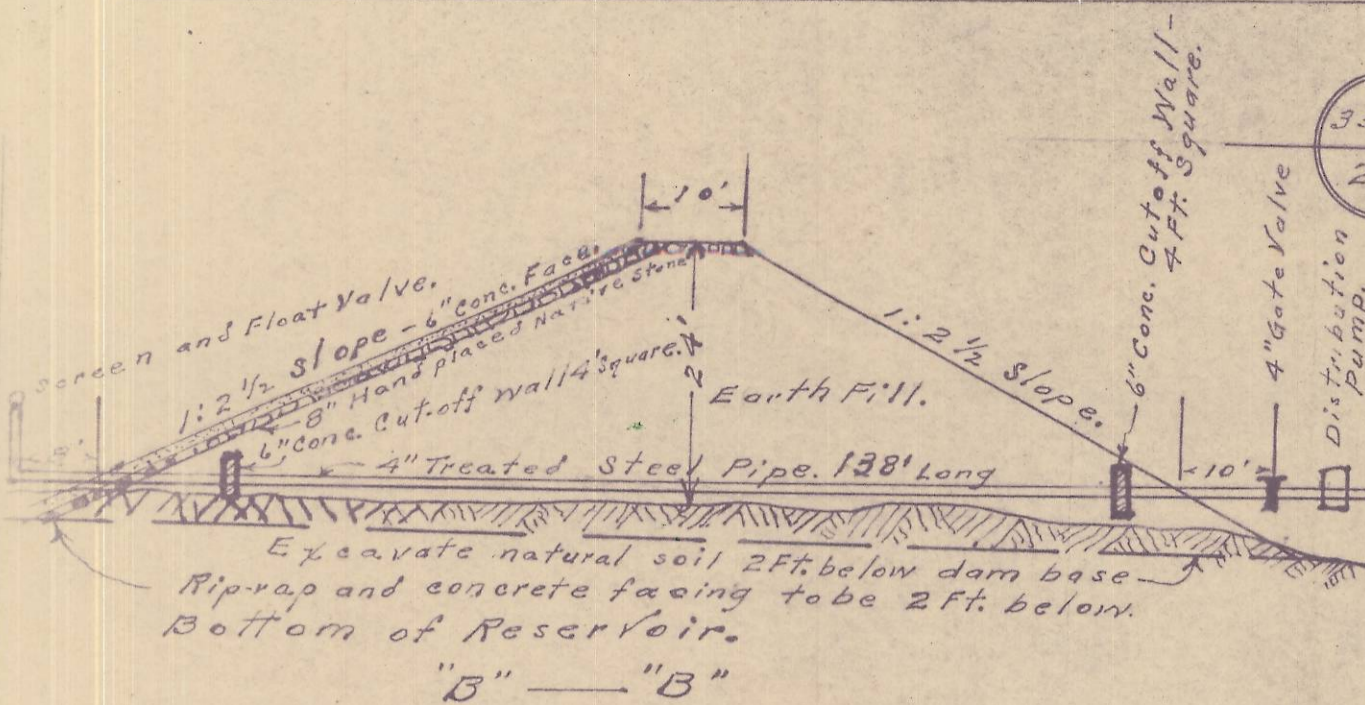 10'
Screen and Float Valve.
1:2 1/2 Slope - 6" Conc. Face.
8" Hand placed Native Stone
6" Conc. Cutoff Wall 4' Square.
24'
Earth Fill.
1:2 1/2 Slope.
4" Treated Steel Pipe. 138' Long
6" Conc. Cutoff Wall -
4 Ft. Square.
10'
4" Gate Valve
Distribution
Pump.
Excavate natural soil 2 Ft. below dam base
Rip-rap and concrete facing to be 2 Ft. below.
Bottom of Reservoir.
"B" — "B"